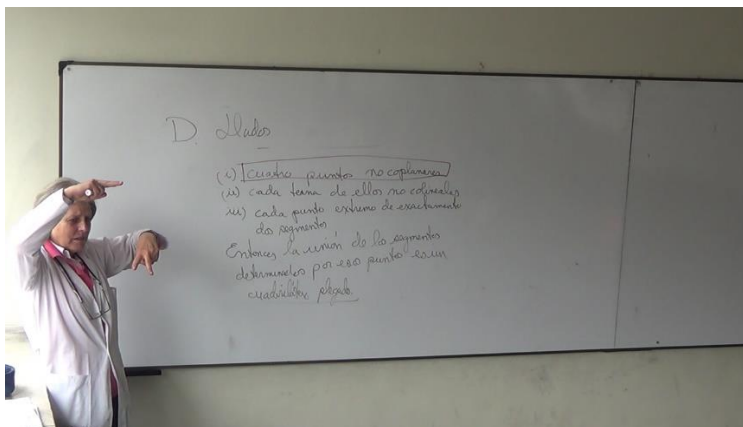 D. Dados
(i) cuatro puntos no coplanares
(ii) cada terna de ellos no colineales
iii) cada punto extremo de exactamente
dos segmentos
Entonces la unión de los segmentos
determinados por esos puntos es un
cuadrilátero plegado